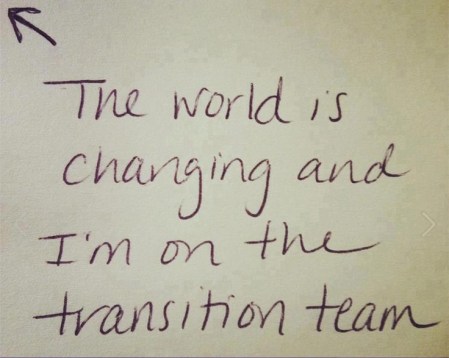 The world is
changing and
I'm on the
transition team